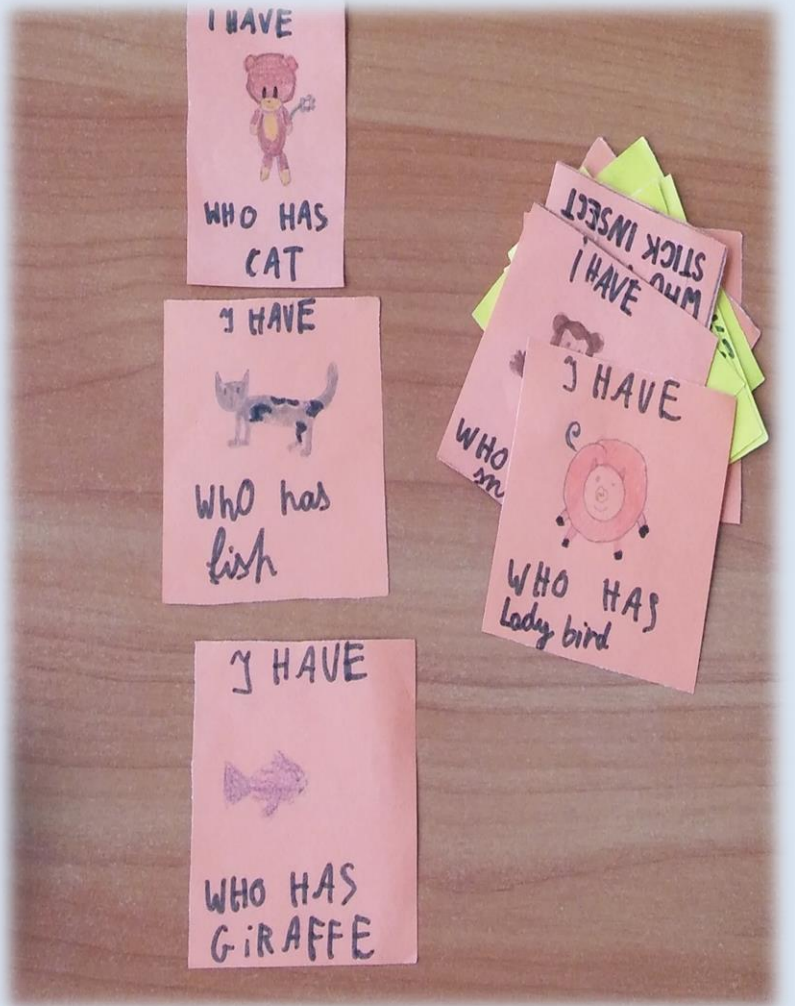 I HAVE
WHO HAS
CAT
I HAVE
WHO has
fish
I HAVE
WHO HAS
GiRAFFE
STICK INSECT
WHO
I HAVE
WHO
I HAVE
WHO HAS
Lady bird